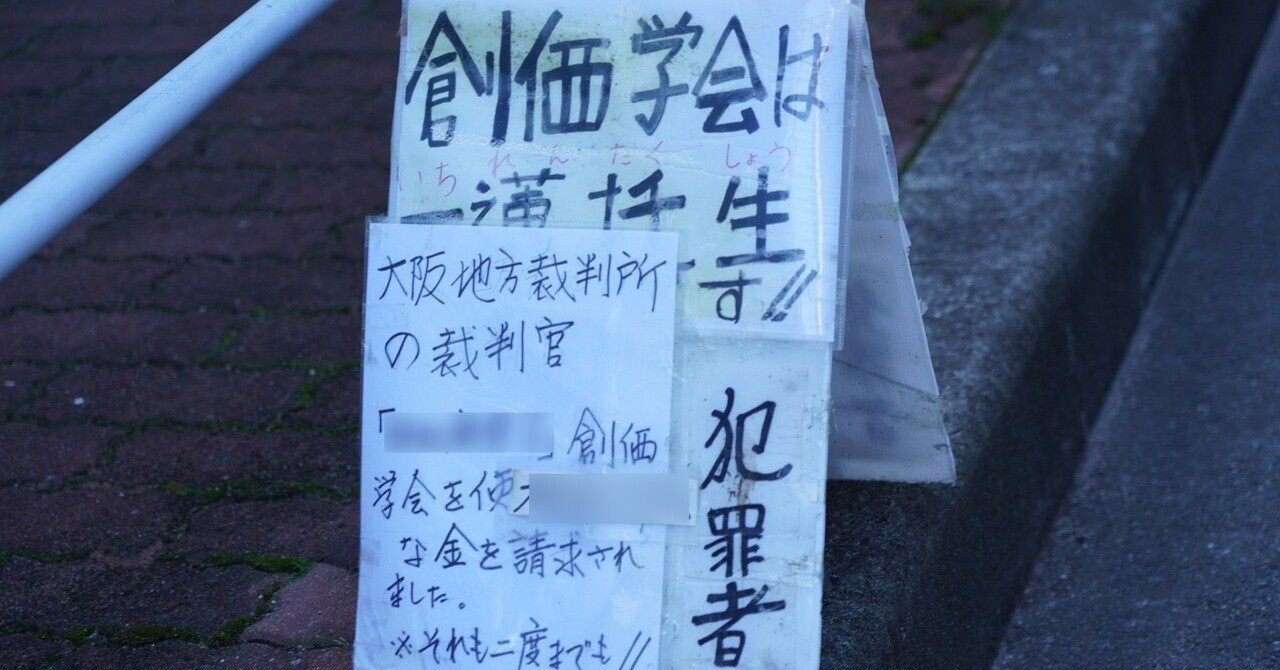 創価学会は
いちれんたくしょう
一蓮托生
す!!
大阪地方裁判所
の裁判官
「 」創価
学会を使
な金を請求され
ました。
※それも二度までも!!
犯罪者